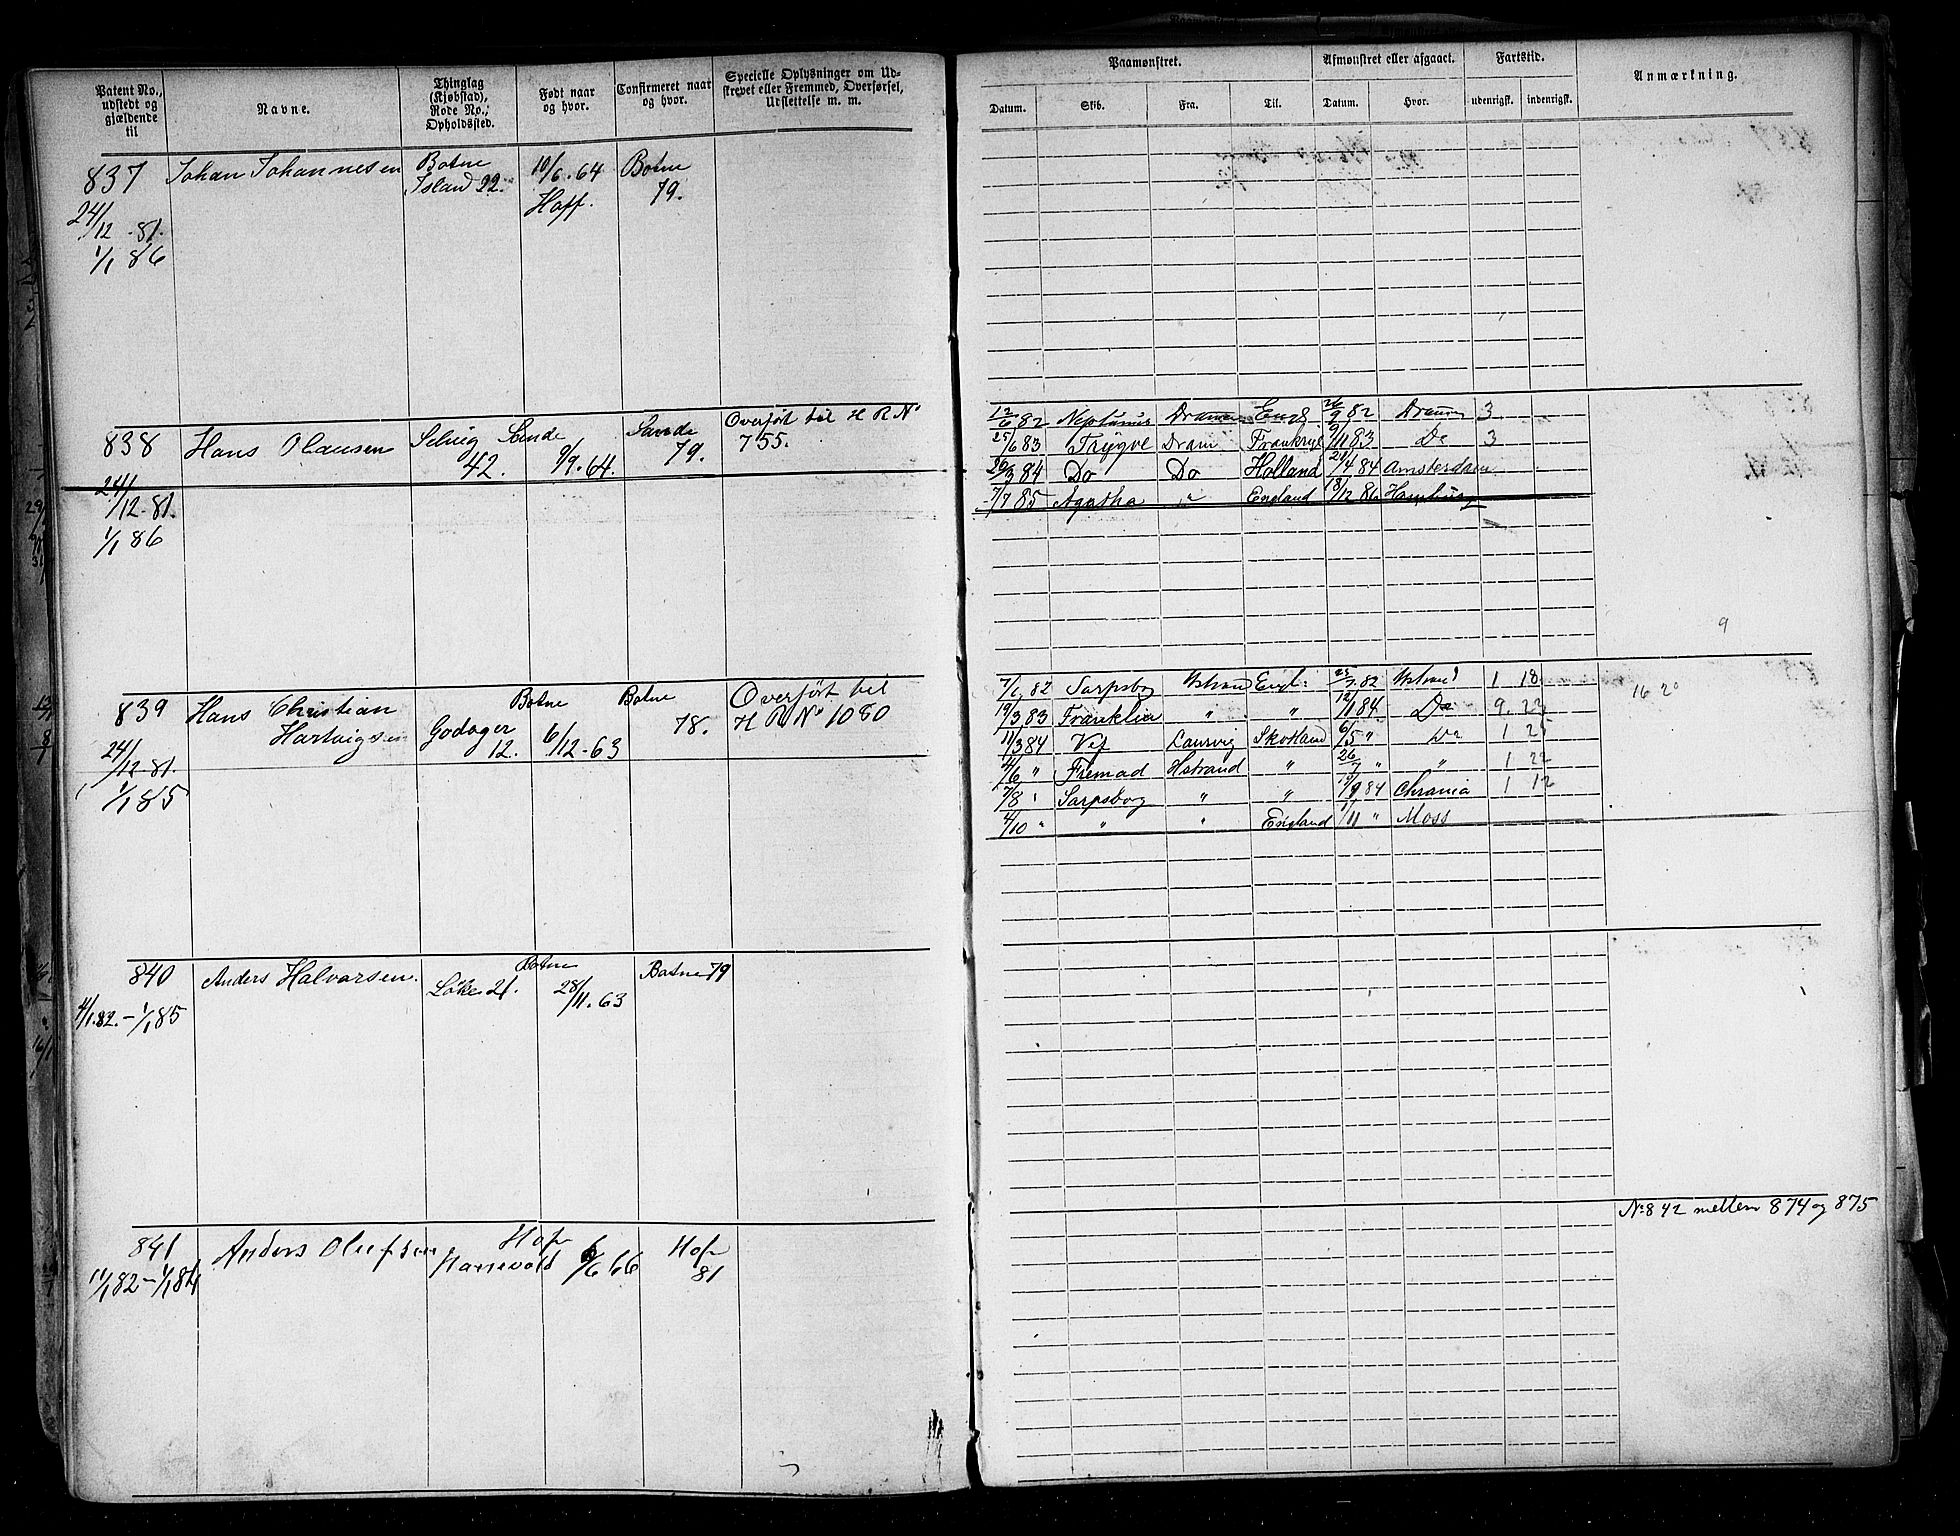 Patent No., udstedt og gjældende til
Navne.
Thinglag (Kjøbstad), Rode No., Opholdssted.
Født naar og hvor.
Confirmeret naar og hvor.
Specielle Oplysninger om Udskrevet eller Fremmed, Overførsel, Udslettelse m. m.
Paamønstret.
Afmønstret eller afgaaet.
Fartstid.
Anmærkning.
Datum. Skib. Fra. Til. Datum. Hvor. udenrigsk. indenrigsk.
837 Johan Johannesen Botne 10/6.64 Botne
Island 22. Hoff. 79.
24/12.81.
1/1 86
838 Hans Olausen Selvig Sande Sande Overført til H R No
42. 9/9.64. 79. 755.
24/12.81.
1/1 86
12/6 82 Neptunus Dramm Engl 26/9 82 Dramn 3
25/6 83 Trygve Dram Frankrig 9/11 83 Do 3
26/3 84 Do Do Holland 24/4 84 Amsterdam
7/7 85 Agatha " England 18/12 86 Hamburg
9
839 Hans Christian Botne Botne Overført til
Hartvigsen Godager 12. 6/12-63 78. H R No 1080
24/12.81.
1/1 85
7/1 82 Sarpsbog Hstrand Engl. 82 Hstrand 1 18
12/3 83 Franklin " " 12/1 84 Do 9. 23
11/3 84 Vej Laurvig Skotland 6/5 " Do 1 25
4/6 " Fremad Hstrand " 26/7 " " 1 22
7/8 " Sarpsbog " " 19/9 84 Chrania 1 12
4/10 " " " England 1/11 " Moss
16 20
840 Anders Halvorsen. Botne Botne 79
Løke 21. 28/11.63
4/1.82.-1/1 85
841 Anders Olufsen Hof Hof
Hanevold 6/6 66 81
11/1 82-1/1 84
No 842 mellem 874 og 875